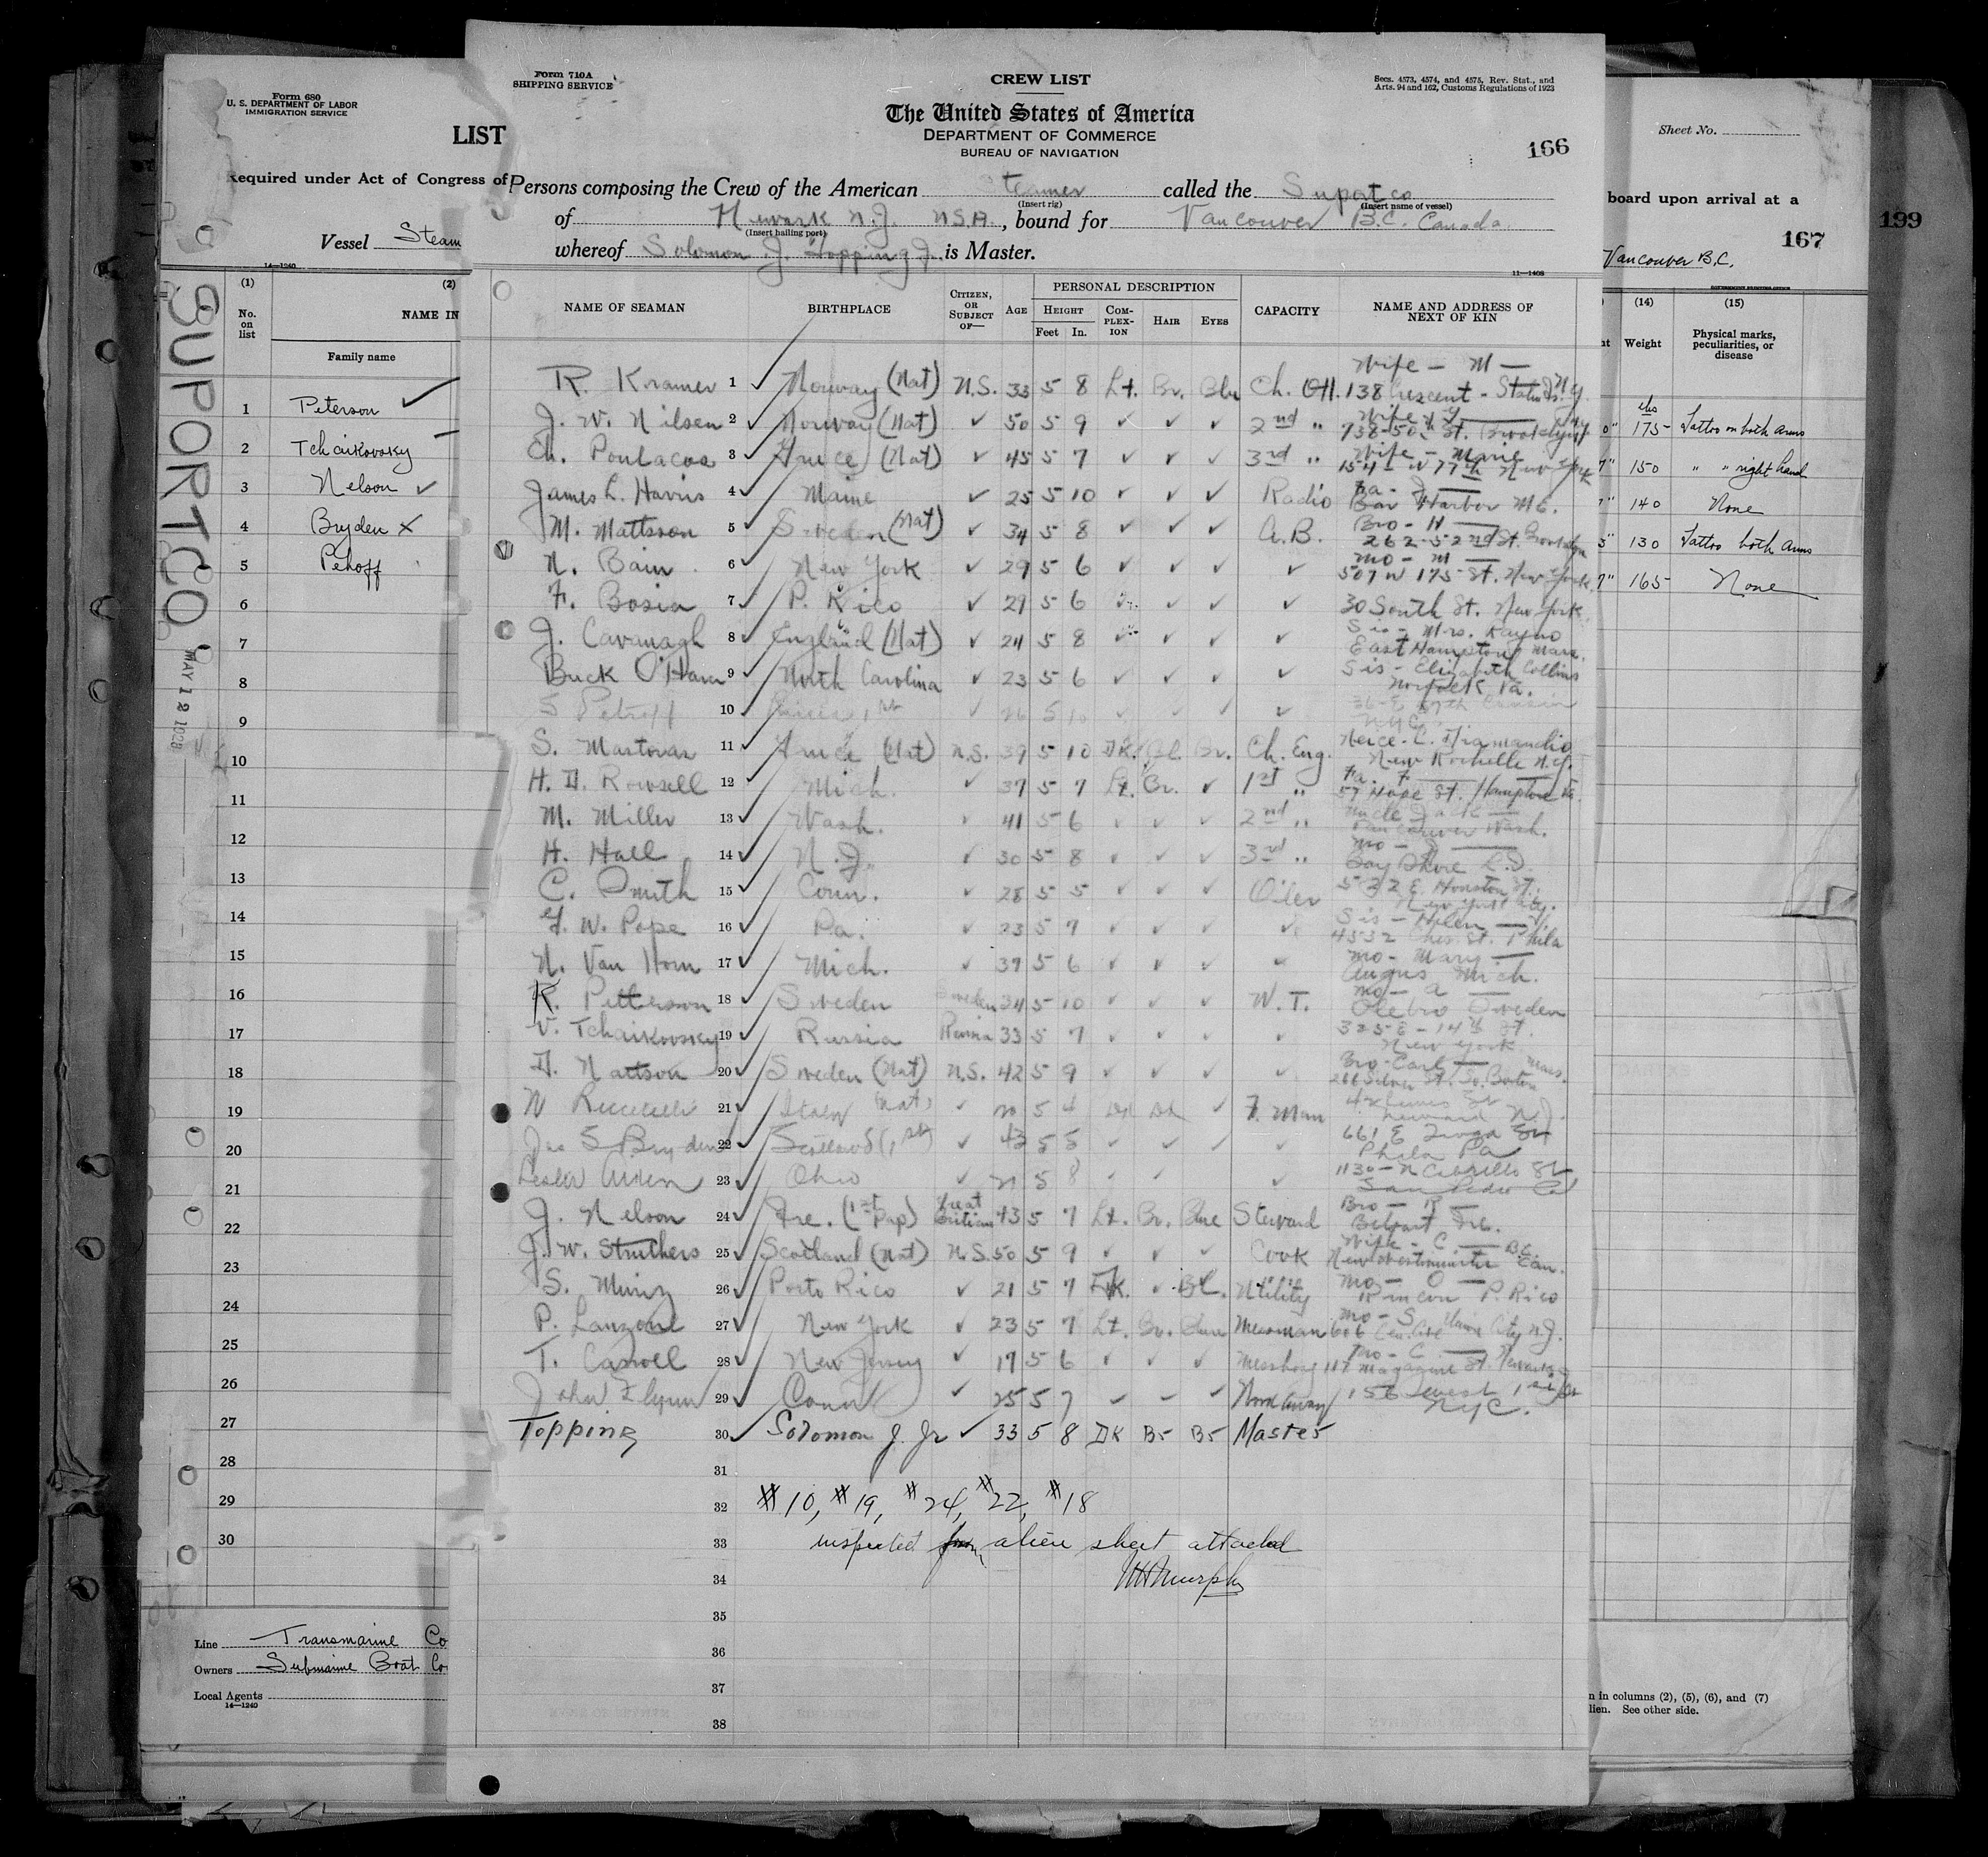 Form 680
U. S. DEPARTMENT OF LABOR
IMMIGRATION SERVICE
LIST
Required under Act of Congress of
Vessel Steam
14—1240
(1) (2)
No. on list
NAME IN
Family name
1 Peterson ✓
2 Tchaikovsky
3 Nelson ✓
4 Bryden X
5 Pehoff
6
7
8
9
10
11
12
13
14
15
16
17
18
19
20
21
22
23
24
25
26
27
28
29
30
Line Transmarine Co
Owners Submarine Boat Co
Local Agents
14—1240
SUPORTCO
MAY 12
Form 710A
SHIPPING SERVICE
CREW LIST
Secs. 4573, 4574, and 4575, Rev. Stat., and
Arts. 94 and 162, Customs Regulations of 1923
The United States of America
DEPARTMENT OF COMMERCE
BUREAU OF NAVIGATION
166
Persons composing the Crew of the American Steamer called the Suportco
(Insert rig) (Insert name of vessel)
of Newark N.J. U.S.A., bound for Vancouver B.C. Canada
(Insert hailing port)
whereof Solomon J. Topping Jr. is Master.
11—1408
NAME OF SEAMAN BIRTHPLACE CITIZEN, OR SUBJECT OF— AGE PERSONAL DESCRIPTION CAPACITY NAME AND ADDRESS OF NEXT OF KIN
HEIGHT COMPLEXION HAIR EYES
Feet In.
Wife - M —
R. Kramer 1 ✓ Norway (Nat) U.S. 33 5 8 Lt. Br. Blu Ch. Off. 138 Crescent - Staten Is. N.Y.
J. W. Nilsen 2 ✓ Norway (Nat) ✓ 50 5 9 ✓ ✓ ✓ 2nd " Wife
738-50th St. Brooklyn
Ch. Poulacos 3 ✓ Greece (Nat) ✓ 45 5 7 ✓ ✓ ✓ 3rd " Wife - Marie
154 - W 77th New York
James L. Harris 4 ✓ Maine ✓ 25 5 10 ✓ ✓ ✓ Radio Fa - J —
Bar Harbor ME.
M. Mattsson 5 ✓ Sweden (Nat) ✓ 34 5 8 ✓ ✓ ✓ A.B. Bro - H —
262-52nd St. Brooklyn
N. Bain 6 ✓ New York ✓ 29 5 6 ✓ ✓ ✓ ✓ Mo - M —
507 W 175 St. New York
F. Bosia 7 ✓ P. Rico ✓ 29 5 6 ✓ ✓ ✓ 30 South St. New York
J. Cavanagh 8 ✓ England (Nat) ✓ 24 5 8 ✓ ✓ ✓ ✓ Sis - Mrs. Rayno
East Hampton Mass.
Buck O'Hara 9 ✓ North Carolina ✓ 23 5 6 ✓ ✓ ✓ ✓ Sis - Elizabeth Collins
Norfolk Va.
S Petroff 10 ✓ Russia 1st ✓ 26 5 10 ✓ ✓ ✓ ✓ Cousin
NYC
S. Mastovas 11 ✓ Greece (Nat) U.S. 39 5 10 DK. Bl. Br. Ch. Eng.
New Rochelle N.Y.
H. D. Rowsell 12 ✓ Mich. ✓ 37 5 7 Lt. Br. ✓ 1st " Fa. F —
57 Hope St. Hampton Va.
M. Miller 13 ✓ Wash. ✓ 41 5 6 ✓ ✓ ✓ 2nd " Uncle Jack —
Vancouver Wash.
H. Hall 14 ✓ N.J. ✓ 30 5 8 ✓ ✓ ✓ 3rd " Mo - J —
Bay Shore L.I.
C. Smith 15 ✓ Conn. ✓ 28 5 5 ✓ ✓ ✓ Oiler 522 E. Houston St.
New York City.
W. Pope 16 ✓ Pa. ✓ 23 5 7 ✓ ✓ ✓ ✓ Sis - Helen —
4532 Ches. St. Phila
N. Van Horn 17 ✓ Mich. ✓ 39 5 6 ✓ ✓ ✓ ✓ Mo - Mary —
Angus Mich.
R. Petterson 18 ✓ Sweden Sweden 34 5 10 ✓ ✓ ✓ W.T. Mo - A —
Olebro Sweden
V. Tchaikovsky 19 ✓ Russia Russia 33 5 7 ✓ ✓ ✓ ✓ 325 E - 14th St.
New York
D. Mattson 20 ✓ Sweden (Nat) U.S. 42 5 9 ✓ ✓ ✓ ✓ Bro - Earl — Mass.
266 Silver St. So. Boston
W 21 ✓ Italy (Nat) ✓ 20 5 4 Dk Dk ✓ F. Man
Newark N.J.
Jas S Bryden 22 ✓ Scotland (1st) ✓ 43 5 5 ✓ ✓ ✓ ✓ 661 E Tioga St
Phila Pa
Lester 23 ✓ Ohio ✓ 21 5 8 ✓ ✓ ✓ 1130 - N Cabrillo St
San Pedro Cal
J. Nelson 24 ✓ Ire. (1st Pap) Great Britian 43 5 7 Lt. Br. Blue Steward Bro - R —
Belfast Ire.
J. W. Struthers 25 ✓ Scotland (Nat) U.S. 50 5 9 ✓ ✓ ✓ Cook Wife - C. — B.C.
New Westminster Can.
S. Muniz 26 ✓ Porto Rico ✓ 21 5 7 DK. ✓ BL. Utility Mo - O —
Rincon P. Rico
P. Lanzone 27 ✓ New York ✓ 23 5 7 Lt. Br. Blue Messman Mo - S
606 Union City N.J.
T. Carroll 28 ✓ New Jersey ✓ 19 5 6 ✓ ✓ ✓ Messboy Mo - C —
117 Magazine St. Newark
John Flynn 29 ✓ Conn ✓ 25 5 7 ✓ ✓ ✓ Workaway 156 West 1st St
NYC.
Topping 30 ✓ Solomon J. Jr ✓ 33 5 8 DK Br Br Master
31
32 #10, #19, #24, #22, #18
33 inspected from alien sheet attached
34 Murphy
35
36
37
38
Sheet No.
board upon arrival at a
167
199
Vancouver B.C.
(14) (15)
Weight Physical marks, peculiarities, or disease
lbs
175 Tattoo on both arms
150 " " right hand
140 None
130 Tattoo both arms
165 None
n in columns (2), (5), (6), and (7)
lien. See other side.